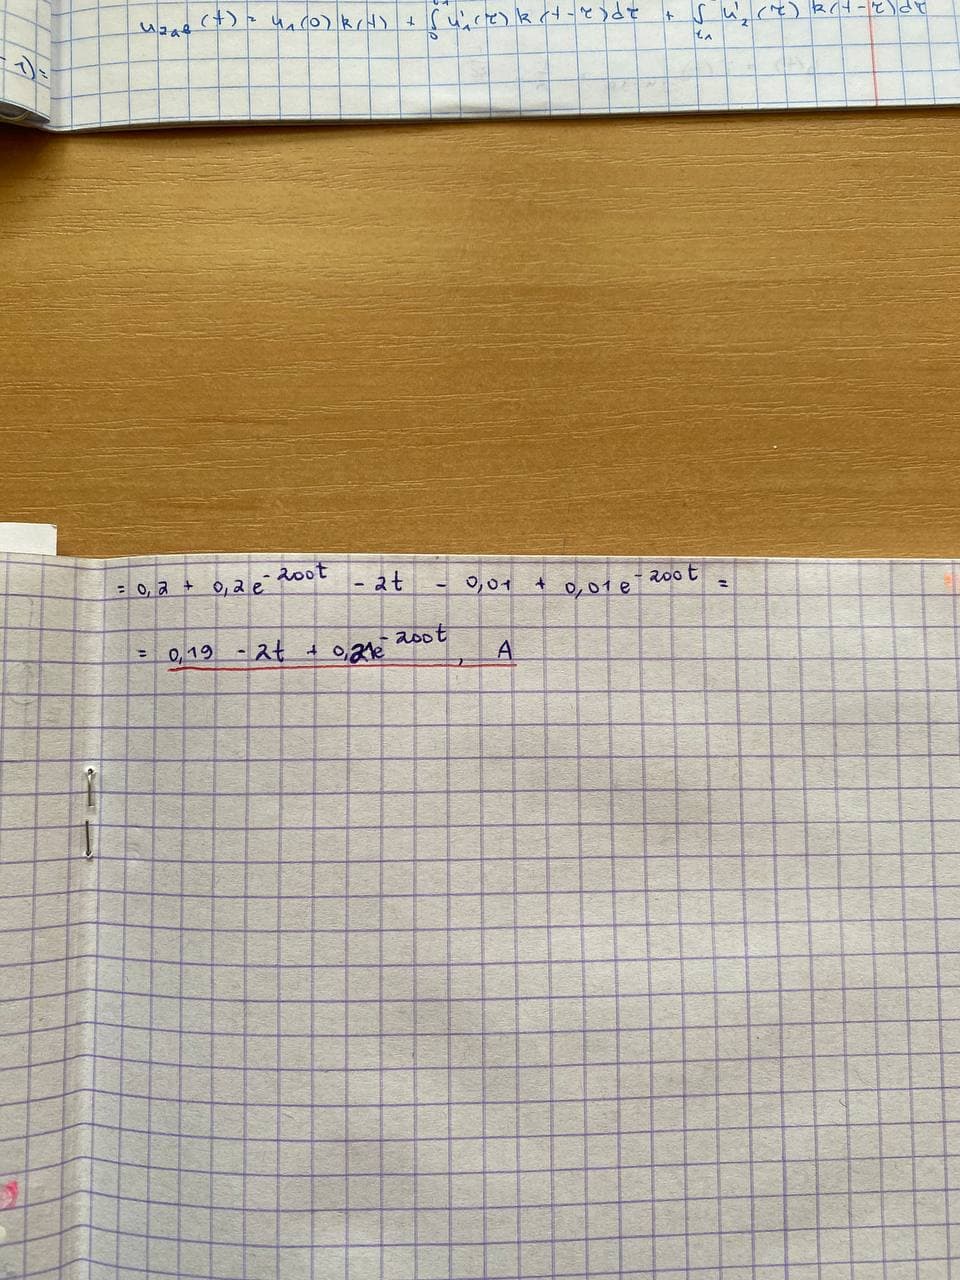 u₂ₐв(t) = u₁(0) k(t) + ∫₀ u'₁(τ) k(t-τ)dτ + ∫ₜ₁ u'₂(τ) k(t-τ)dτ
-1)=
= 0,2 + 0,2e^-200t - 2t - 0,01 + 0,01e^-200t =
= 0,19 - 2t + 0,21e^-200t, A